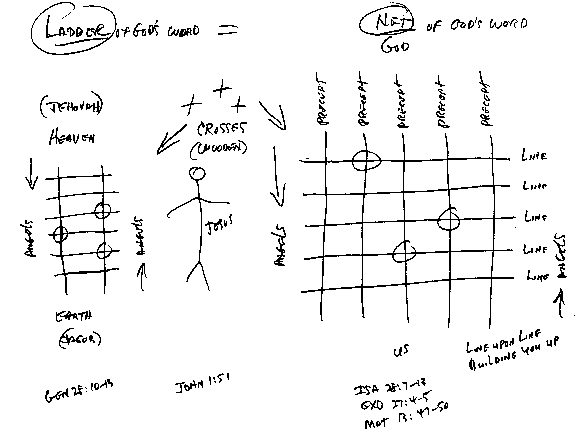 LADDER OF GOD'S WORD = NET OF GOD'S WORD
GOD
(JEHOVAH)
HEAVEN
ANGELS
ANGELS
EARTH
GEN 28:10-13
CROSSES
(WOODEN)
JESUS
JOHN 1:51
PRECEPT
PRECEPT
PRECEPT
PRECEPT
PRECEPT
LINE
LINE
LINE
LINE
LINE
ANGELS
ANGELS
US
LINE UPON LINE
BUILDING YOU UP
ISA 28:7-13
EXO 27:4-5
MAT 13:47-50